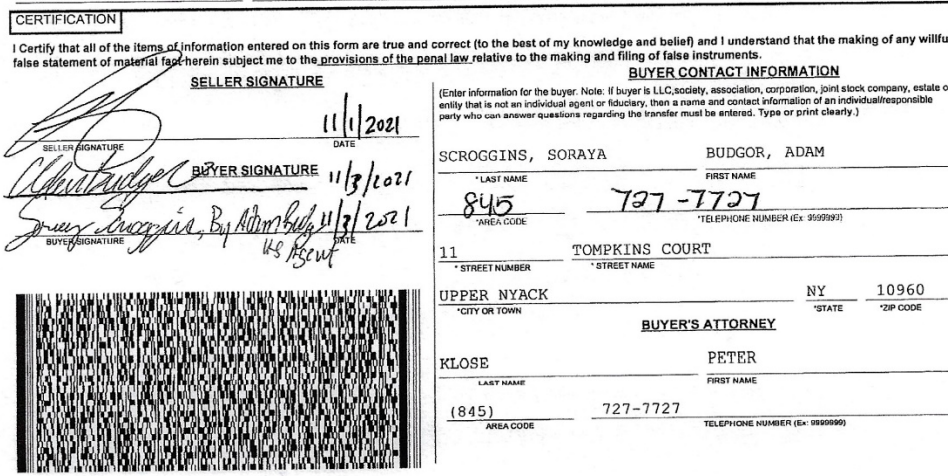 CERTIFICATION
I Certify that all of the items of information entered on this form are true and correct (to the best of my knowledge and belief) and I understand that the making of any willfu
false statement of material fact herein subject me to the provisions of the penal law relative to the making and filing of false instruments.
SELLER SIGNATURE
11/1/2021
SELLER SIGNATURE
DATE
BUYER SIGNATURE
11/3/2021
By Adam
11/3/2021
BUYER SIGNATURE
DATE
His Agent
BUYER CONTACT INFORMATION
(Enter information for the buyer. Note: If buyer is LLC,society, association, corporation, joint stock company, estate o
entity that is not an individual agent or fiduciary, then a name and contact information of an individual/responsible
party who can answer questions regarding the transfer must be entered. Type or print clearly.)
SCROGGINS, SORAYA BUDGOR, ADAM
*LAST NAME FIRST NAME
845 727-7727
*AREA CODE *TELEPHONE NUMBER (Ex: 9999999)
11 TOMPKINS COURT
*STREET NUMBER *STREET NAME
UPPER NYACK NY 10960
*CITY OR TOWN *STATE *ZIP CODE
BUYER'S ATTORNEY
KLOSE PETER
LAST NAME FIRST NAME
(845) 727-7727
AREA CODE TELEPHONE NUMBER (Ex: 9999999)